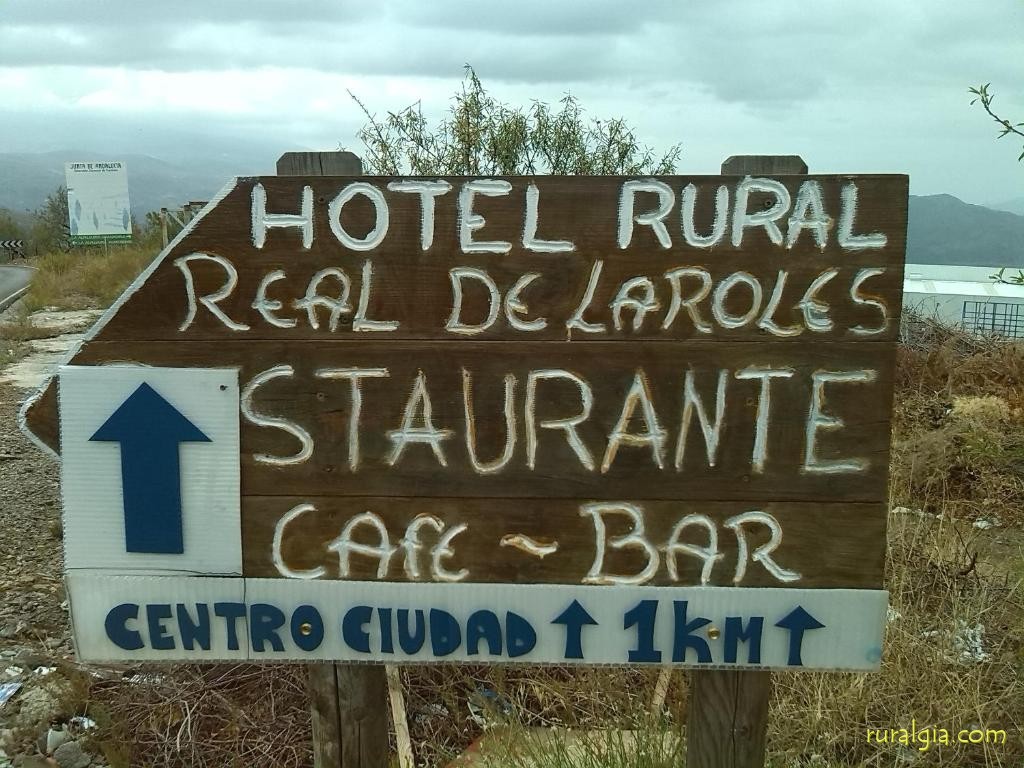 JUNTA DE ANDALUCIA
HOTEL RURAL
REAL DE LAROLES
STAURANTE
CAFE ~ BAR
CENTRO CIUDAD ↑ 1KM ↑
ruralgia.com